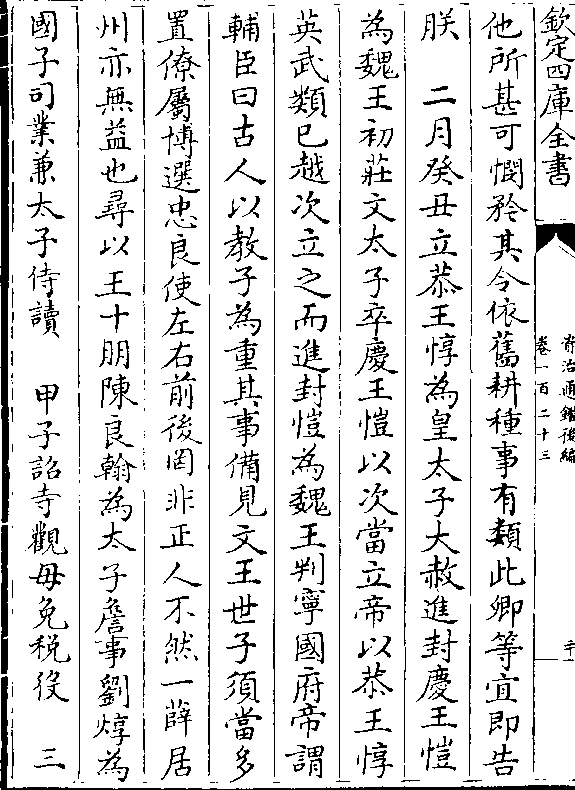 欽定四庫全書
資治通鑑後編
卷一百二十三
二十
他所甚可憫矜其令依舊耕種事有類此卿等宜即告
朕　二月癸丑立恭王惇為皇太子大赦進封慶王愷
為魏王初莊文太子卒慶王愷以次當立帝以恭王惇
英武類已越次立之而進封愷為魏王判寧國府帝謂
輔臣曰古人以教子為重其事備見文王世子須當多
置僚屬博選忠良使左右前後罔非正人不然一薛居
州亦無益也尋以王十朋陳良翰為太子詹事劉焞為
國子司業兼太子侍讀　甲子詔寺觀毋免税役　三